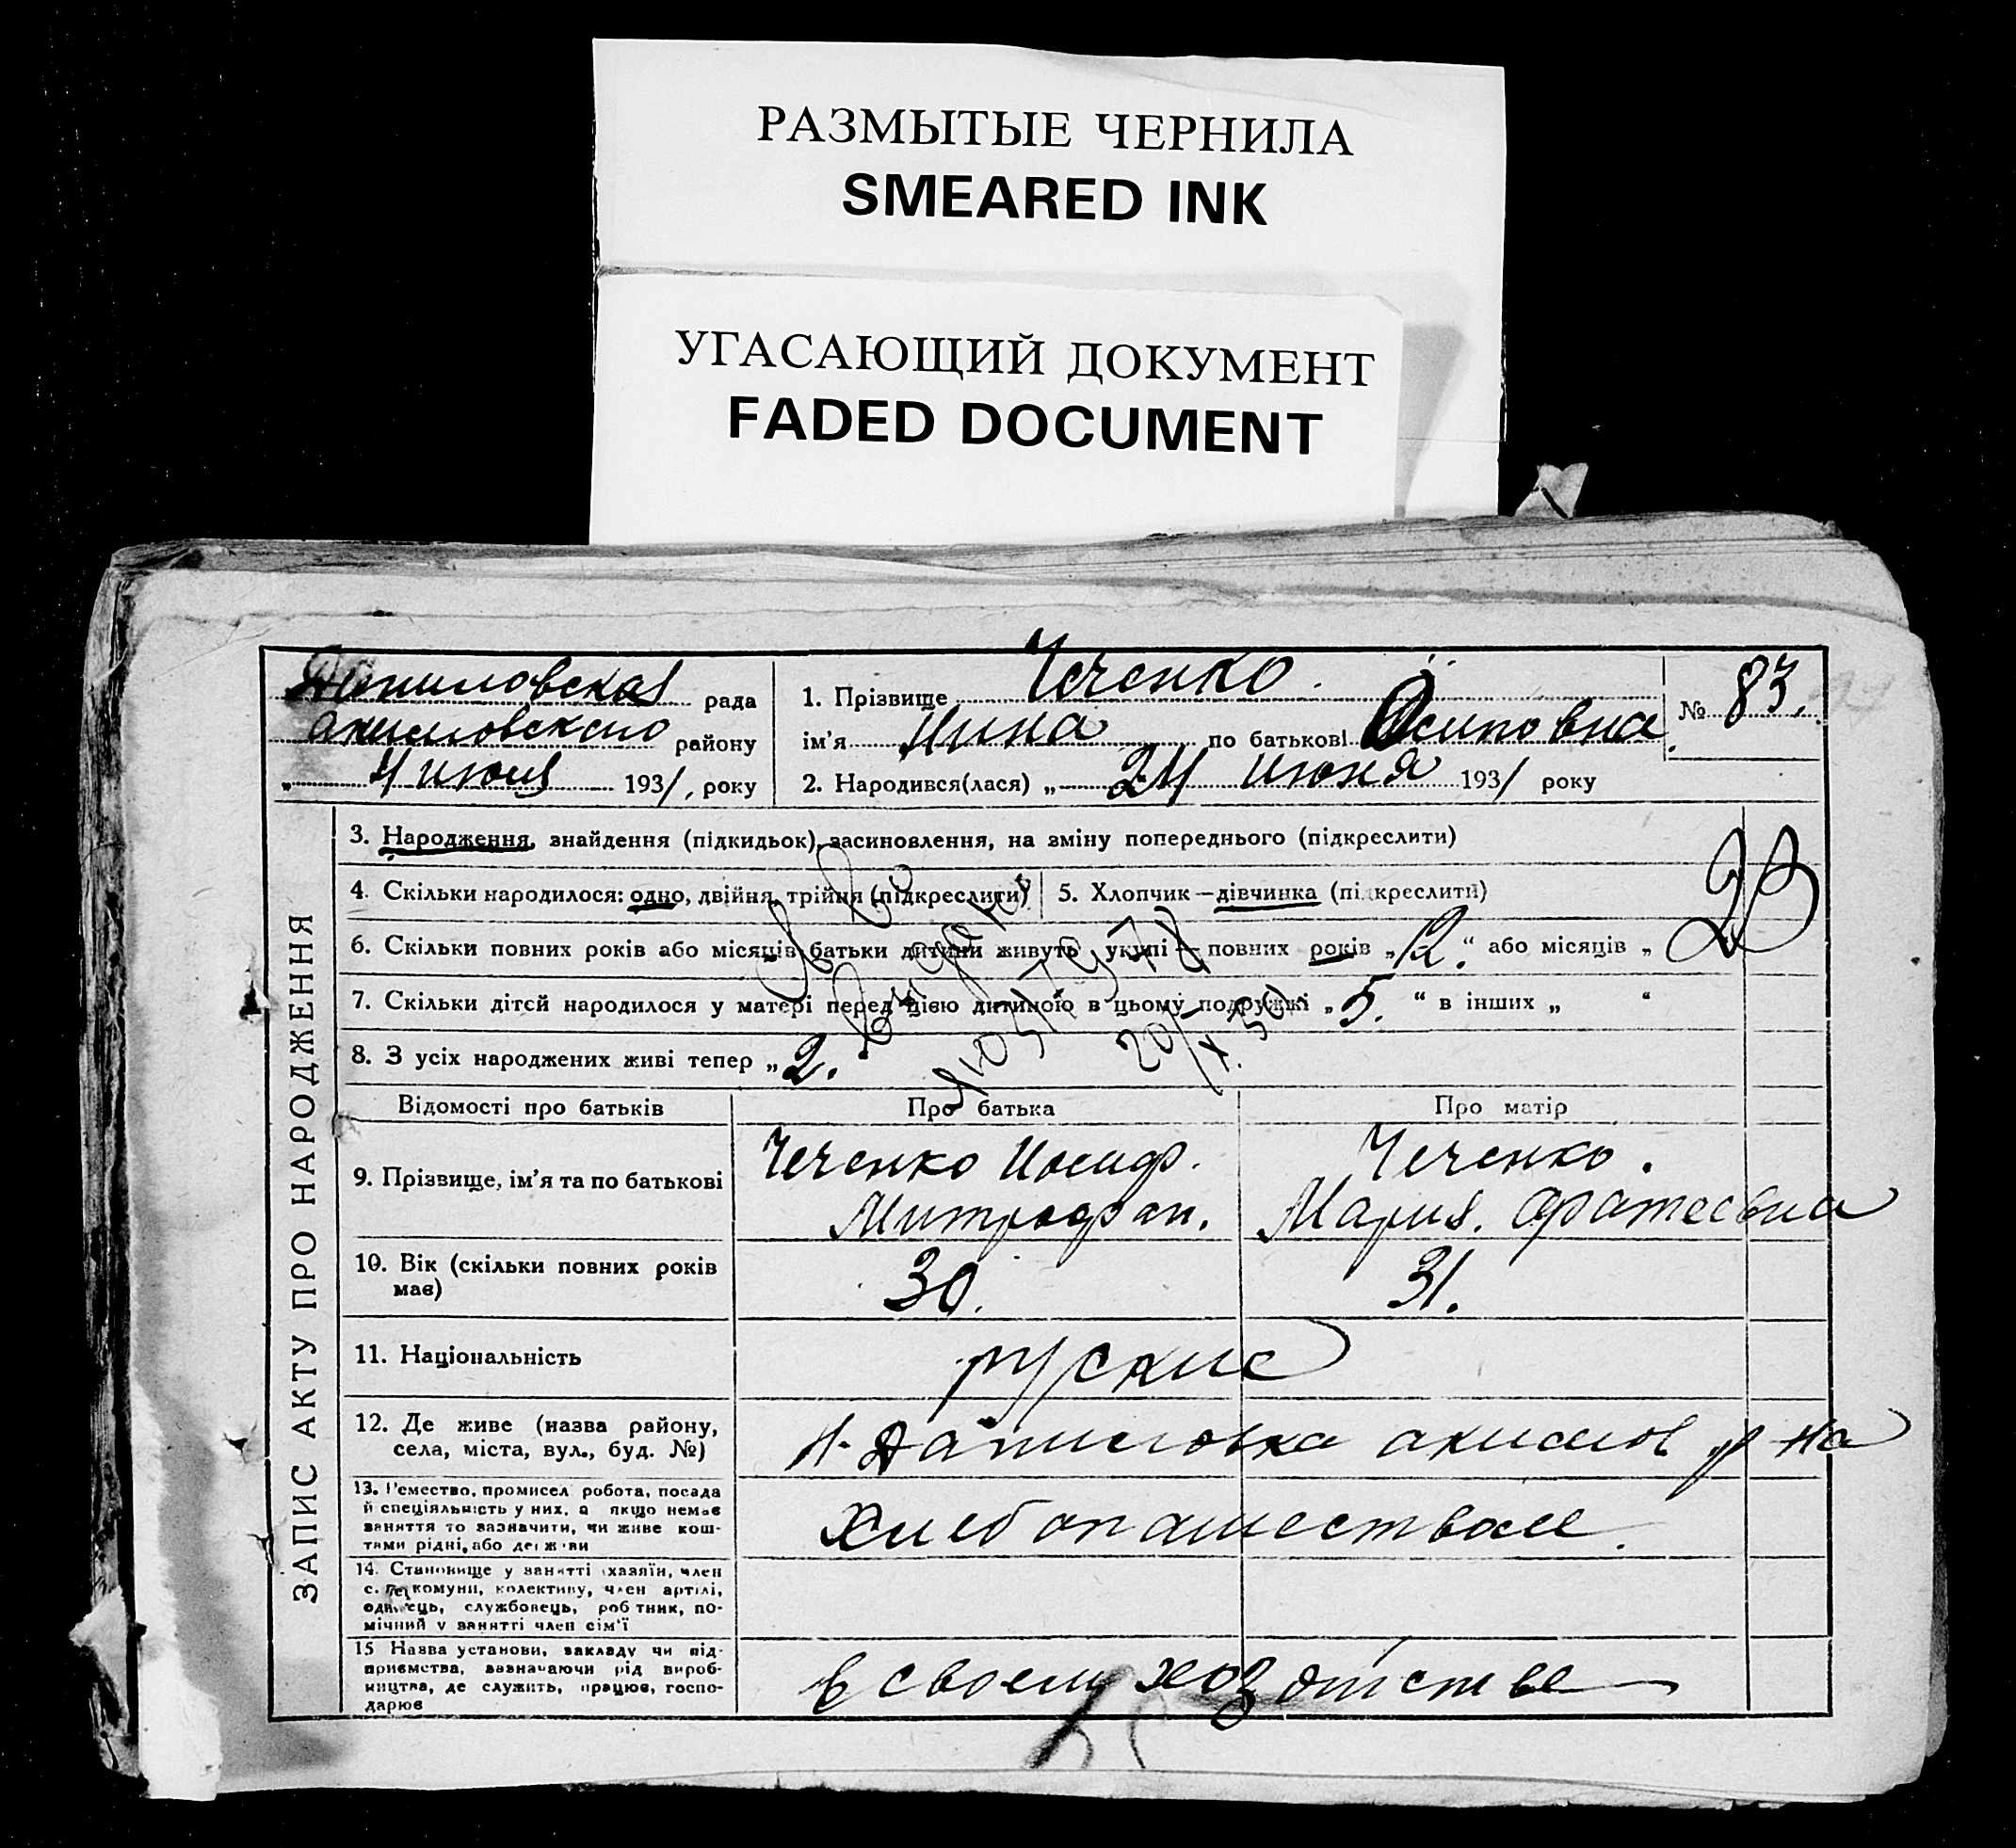 РАЗМЫТЫЕ ЧЕРНИЛА
SMEARED INK
УГАСАЮЩИЙ ДОКУМЕНТ
FADED DOCUMENT
Даниловская рада
акимовского району
„ 4 июля 1931, року
1. Прізвище Чеченко.
ім’я Нина по батькові Осиповна
2. Народився(лася) „ 24 июня 1931 року
№ 83.
ЗАПИС АКТУ ПРО НАРОДЖЕННЯ
3. Народження, знайдення (підкидьок), засиновлення, на зміну попереднього (підкреслити)
4. Скільки народилося: одно, двійня, трійня (підкреслити)
5. Хлопчик—дівчинка (підкреслити)
6. Скільки повних років або місяців батьки дитини живуть укупі — повних років „12.“ або місяців „
7. Скільки дітей народилося у матері перед цією дитиною в цьому подружжі „5.“ в інших „ “
8. З усіх народжених живі тепер „2.
20/X.50
Відомості про батьків
Про батька
Про матір
9. Прізвище, ім’я та по батькові
Чеченко Иосиф.
Митрофан.
Чеченко.
Мария.
10. Вік (скільки повних років
має)
30.
31.
11. Національність
руские
12. Де живе (назва району,
села, міста, вул., буд. №)
Н-Даниловка акимов р на
13. Ремество, промисел робота, посада
й спеціяльність у них, а якщо немає
заняття то зазначити, чи живе кош-
тами рідні, або держави
Хлебопашеством.
14. Становище у занятті (хазяїн, член
с.-г. комуни, колективу, член артілі,
одинець, службовець, робітник, по-
мічний у занятті член сім’ї
15 Назва установи, закладу чи під-
приємства, зазначаючи рід вироб-
ництва, де служить, працює, госпо-
дарює
в своем хозяйстве